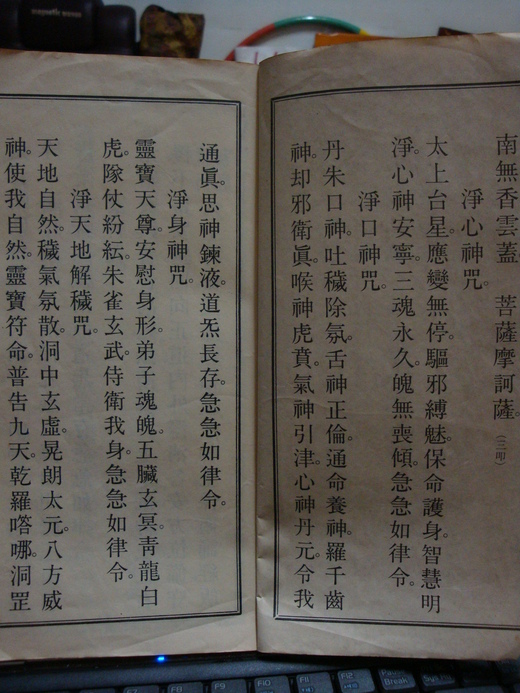 南無香雲蓋。菩薩摩訶薩。(三叩)
淨心神咒。
太上台星。應變無停。驅邪縛魅。保命護身。智慧明
淨。心神安寧。三魂永久。魄無喪傾。急急如律令。
淨口神咒。
丹朱口神。吐穢除氛。舌神正倫。通命養神。羅千齒
神。却邪衛眞。喉神虎賁。氣神引津。心神丹元。令我
通眞。思神鍊液。道炁長存。急急如律令。
淨身神咒。
靈寶天尊。安慰身形。弟子魂魄。五臟玄冥。靑龍白
虎。隊仗紛紜。朱雀玄武。侍衛我身。急急如律令。
淨天地解穢咒。
天地自然。穢氣氛散。洞中玄虛。晃朗太元。八方威
神。使我自然。靈寶符命。普告九天。乾羅嗒哪。洞罡
magnetic
Pause
Break
Ins
Del
F9
F10
F11
F12